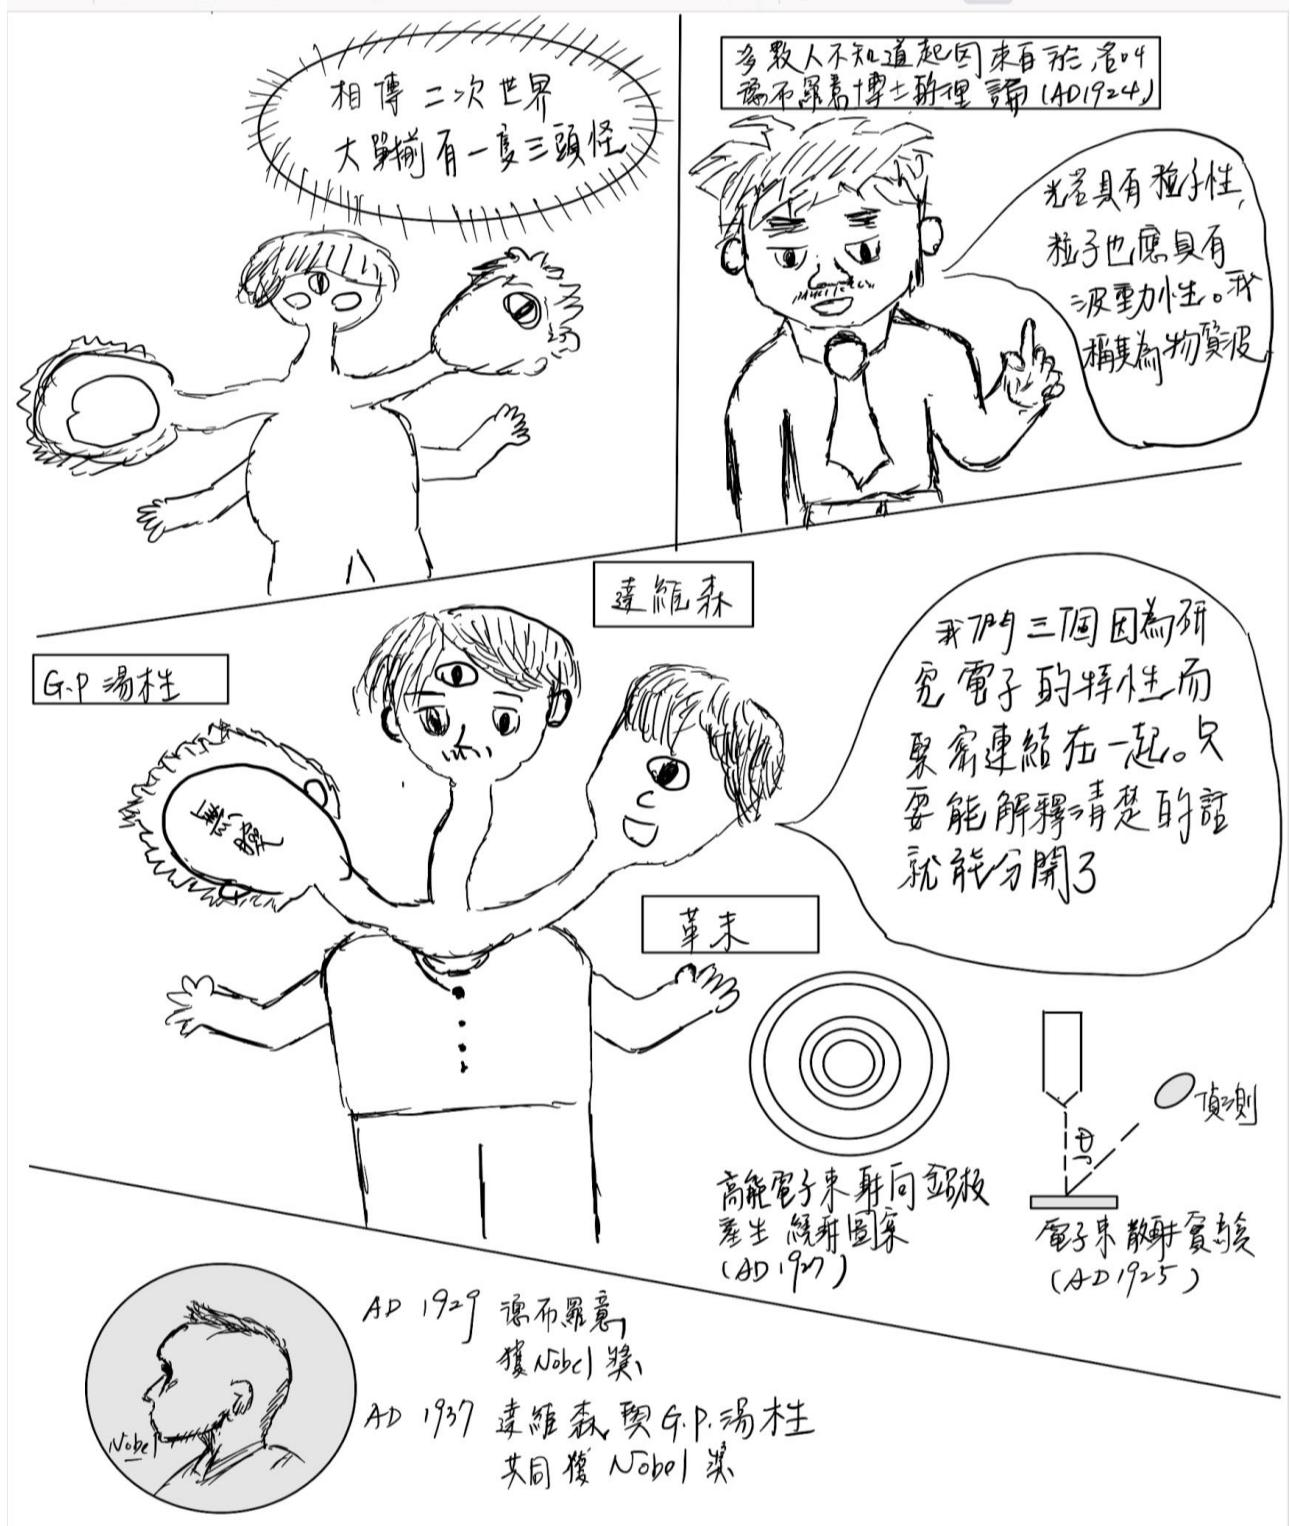 相傳二次世界
大戰前有一隻三頭怪
多數人不知道起因來自於,名叫
德布羅意博士的理論(AD1924)
光若具有粒子性,
粒子也應具有
波動性。我
稱其為物質波
達維森
G.P 湯木生
無髮
革末
我們三個因為研
究電子的特性而
緊密連結在一起。只
要能解釋清楚的話
就能分開了
高能電子束射向鋁板
產生繞射圖案
(AD 1927)
θ
偵測
電子束散射實驗
(AD 1925)
Nobel
AD 1929 德布羅意
獲 Nobel 獎
AD 1937 達維森與 G.P. 湯木生
共同獲 Nobel 獎